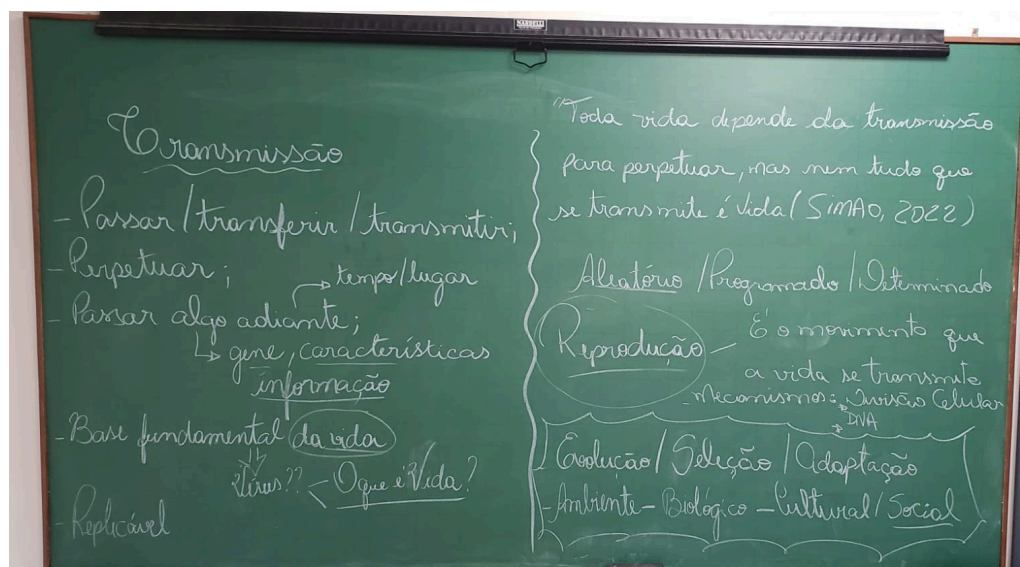 Transmissão
- Passar/transferir/transmitir;
- Perpetuar;
tempo/lugar
- Passar algo adiante;
gene, características
informação
- Base fundamental da vida
Vírus?? - O que é Vida?
- Replicável
"Toda vida depende da transmissão
para perpetuar, mas nem tudo que
se transmite é vida (SIMÃO, 2022)
Aleatório / Programado / Determinado
Reprodução - É o movimento que
a vida se transmite
- Mecanismos: Divisão Celular
DNA
Evolução / Seleção / Adaptação
- Ambiente - Biológico - Cultural / Social